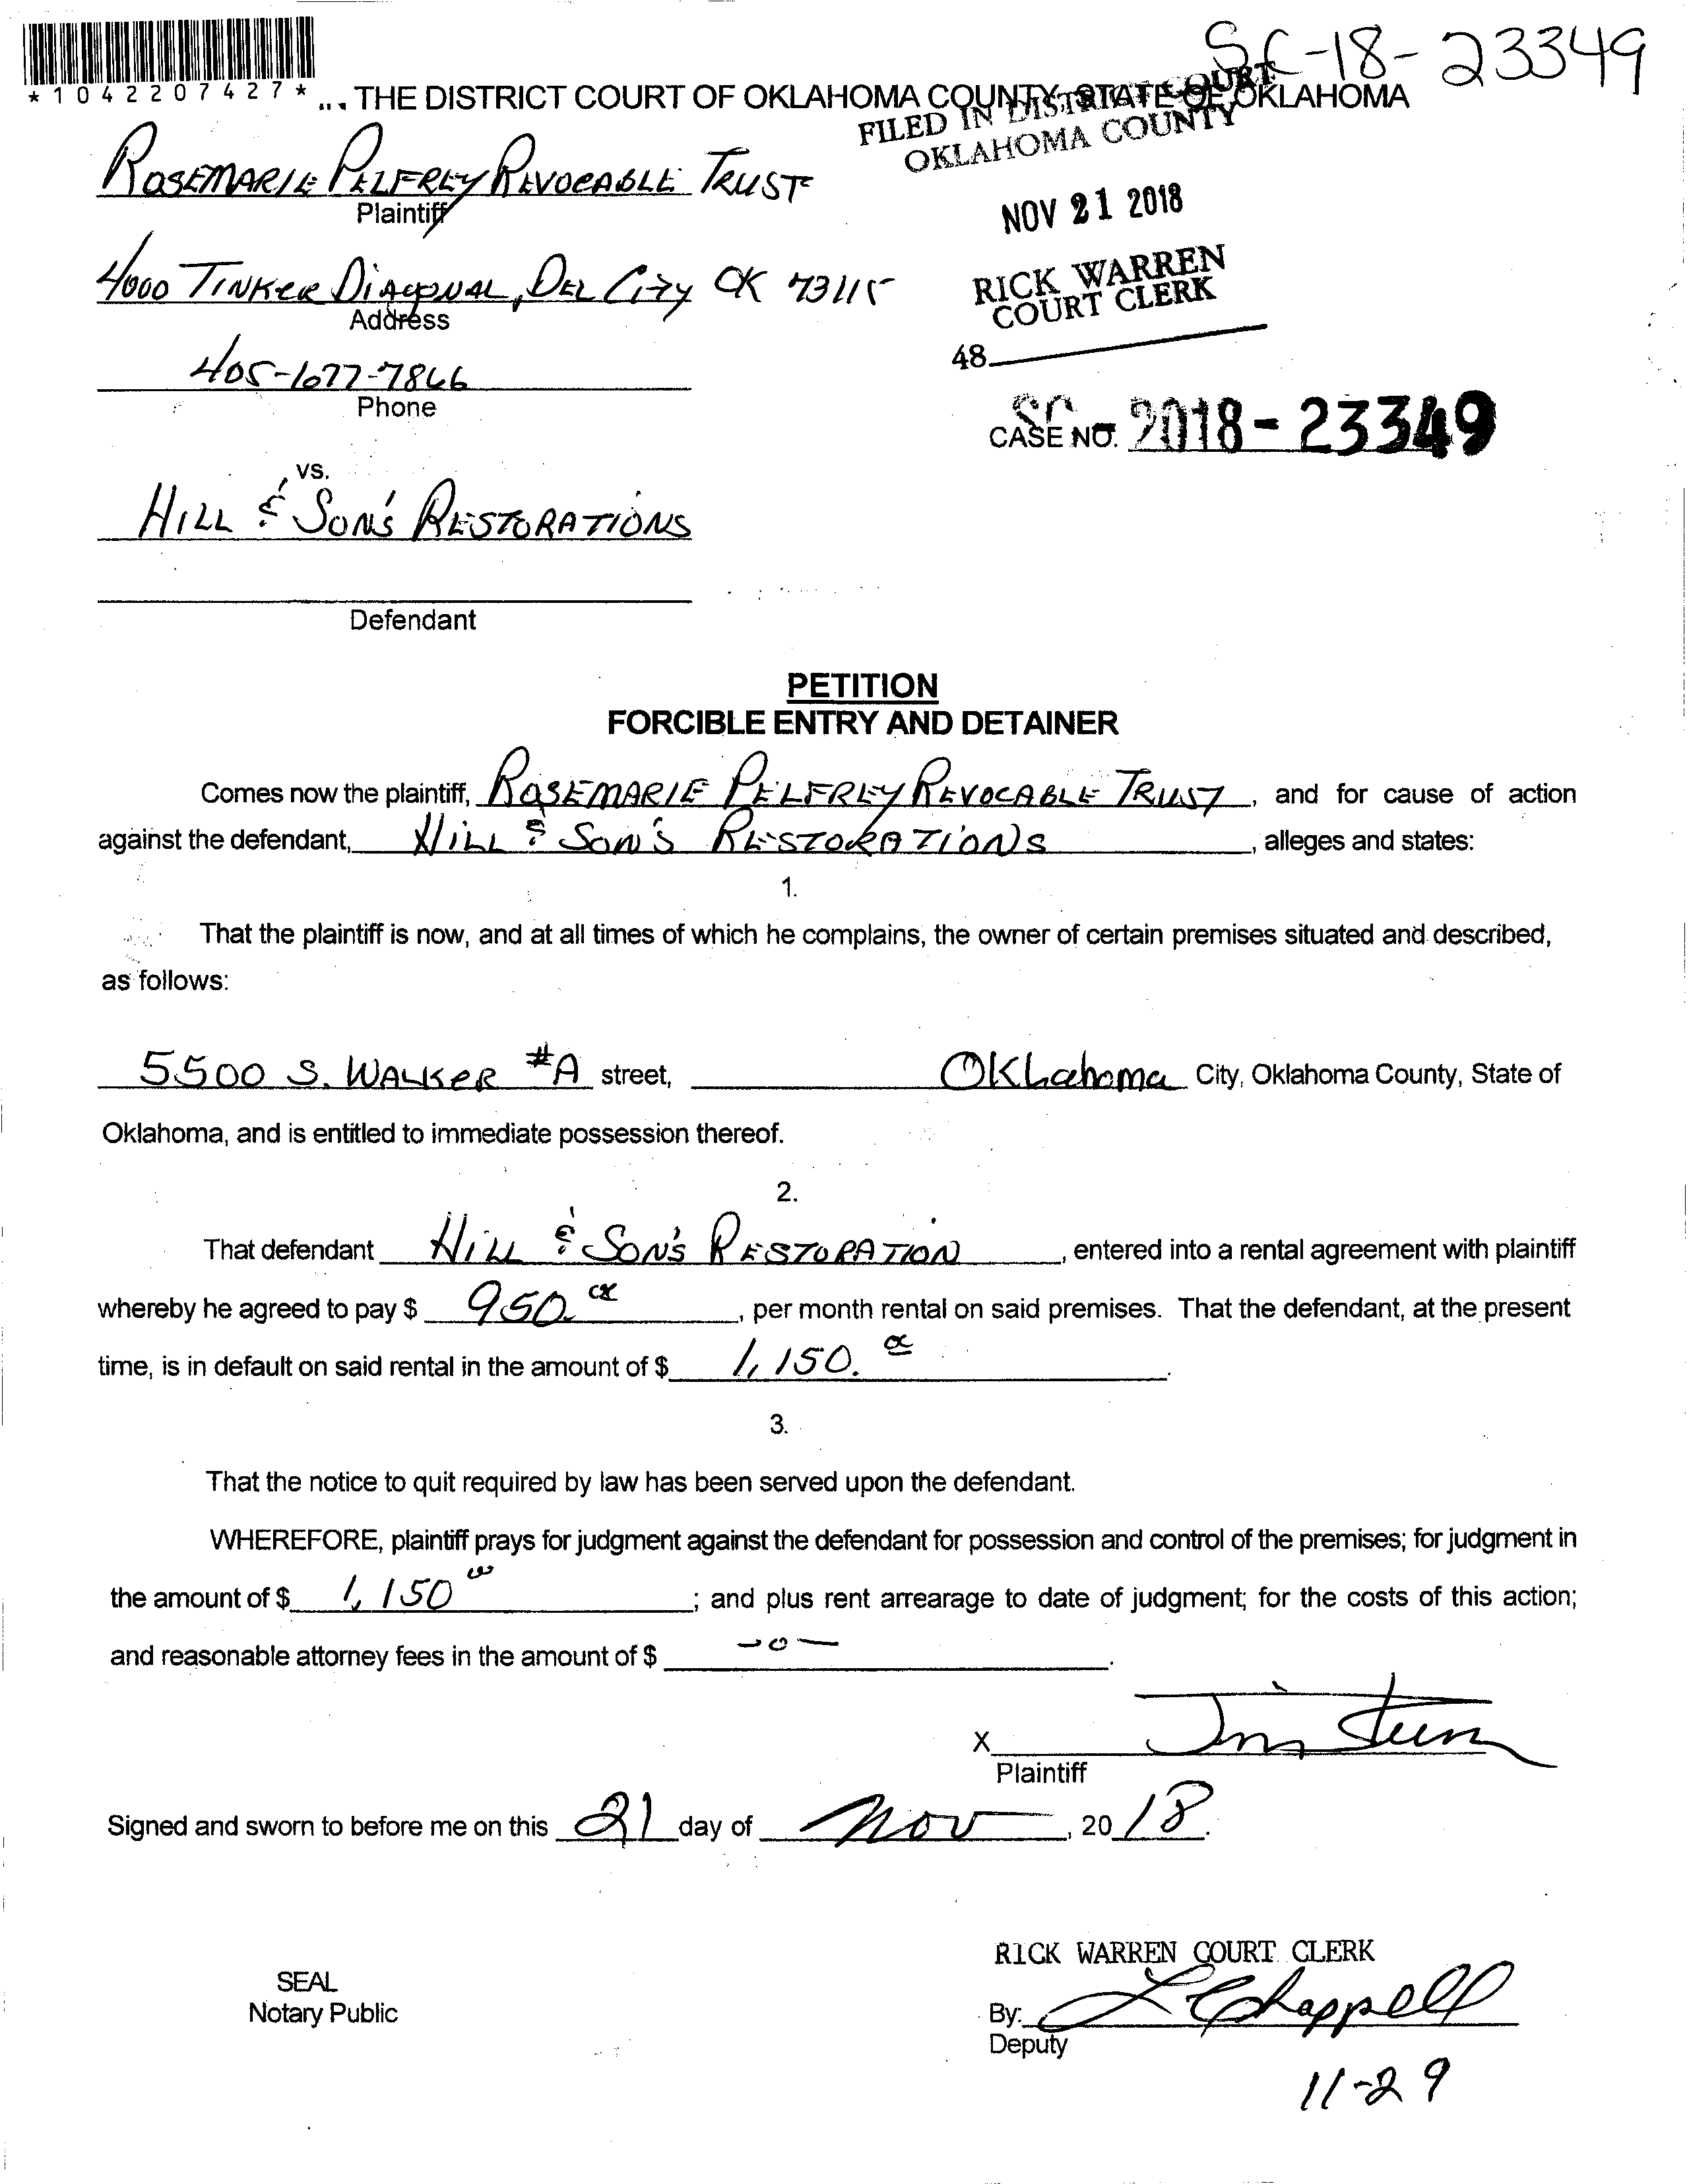 SC-18-23349
*1042207427*
THE DISTRICT COURT OF OKLAHOMA COUNTY, STATE OF OKLAHOMA
FILED IN DISTRICT COURT
OKLAHOMA COUNTY
ROSEMARIE PELFREY REVOCABLE TRUST
Plaintiff
NOV 21 2018
4000 TINKER DIAGONAL, DEL CITY OK 73115
Address
RICK WARREN
COURT CLERK
48
405-677-7866
Phone
CASE NO. SC-2018-23349
vs.
HILL & SON'S RESTORATIONS
Defendant
PETITION
FORCIBLE ENTRY AND DETAINER
Comes now the plaintiff, ROSEMARIE PELFREY REVOCABLE TRUST, and for cause of action
against the defendant, HILL & SON'S RESTORATIONS, alleges and states:
1.
That the plaintiff is now, and at all times of which he complains, the owner of certain premises situated and described,
as follows:
5500 S. WALKER #A street, Oklahoma City, Oklahoma County, State of
Oklahoma, and is entitled to immediate possession thereof.
2.
That defendant HILL & SON'S RESTORATION, entered into a rental agreement with plaintiff
whereby he agreed to pay $ 950.00, per month rental on said premises. That the defendant, at the present
time, is in default on said rental in the amount of $ 1,150.00.
3.
That the notice to quit required by law has been served upon the defendant.
WHEREFORE, plaintiff prays for judgment against the defendant for possession and control of the premises; for judgment in
the amount of $ 1,150 00; and plus rent arrearage to date of judgment; for the costs of this action;
and reasonable attorney fees in the amount of $ -0-.
X
Plaintiff
Signed and sworn to before me on this 21 day of Nov, 20 18.
RICK WARREN COURT CLERK
SEAL
Notary Public
By: L Chappell
Deputy
11-29